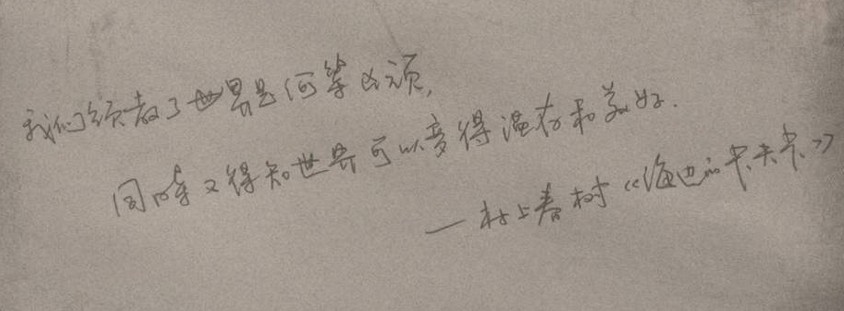 我们领教了世界是何等凶顽，
同时又得知世界可以变得温存和美好.
—村上春树《海边的卡夫卡》